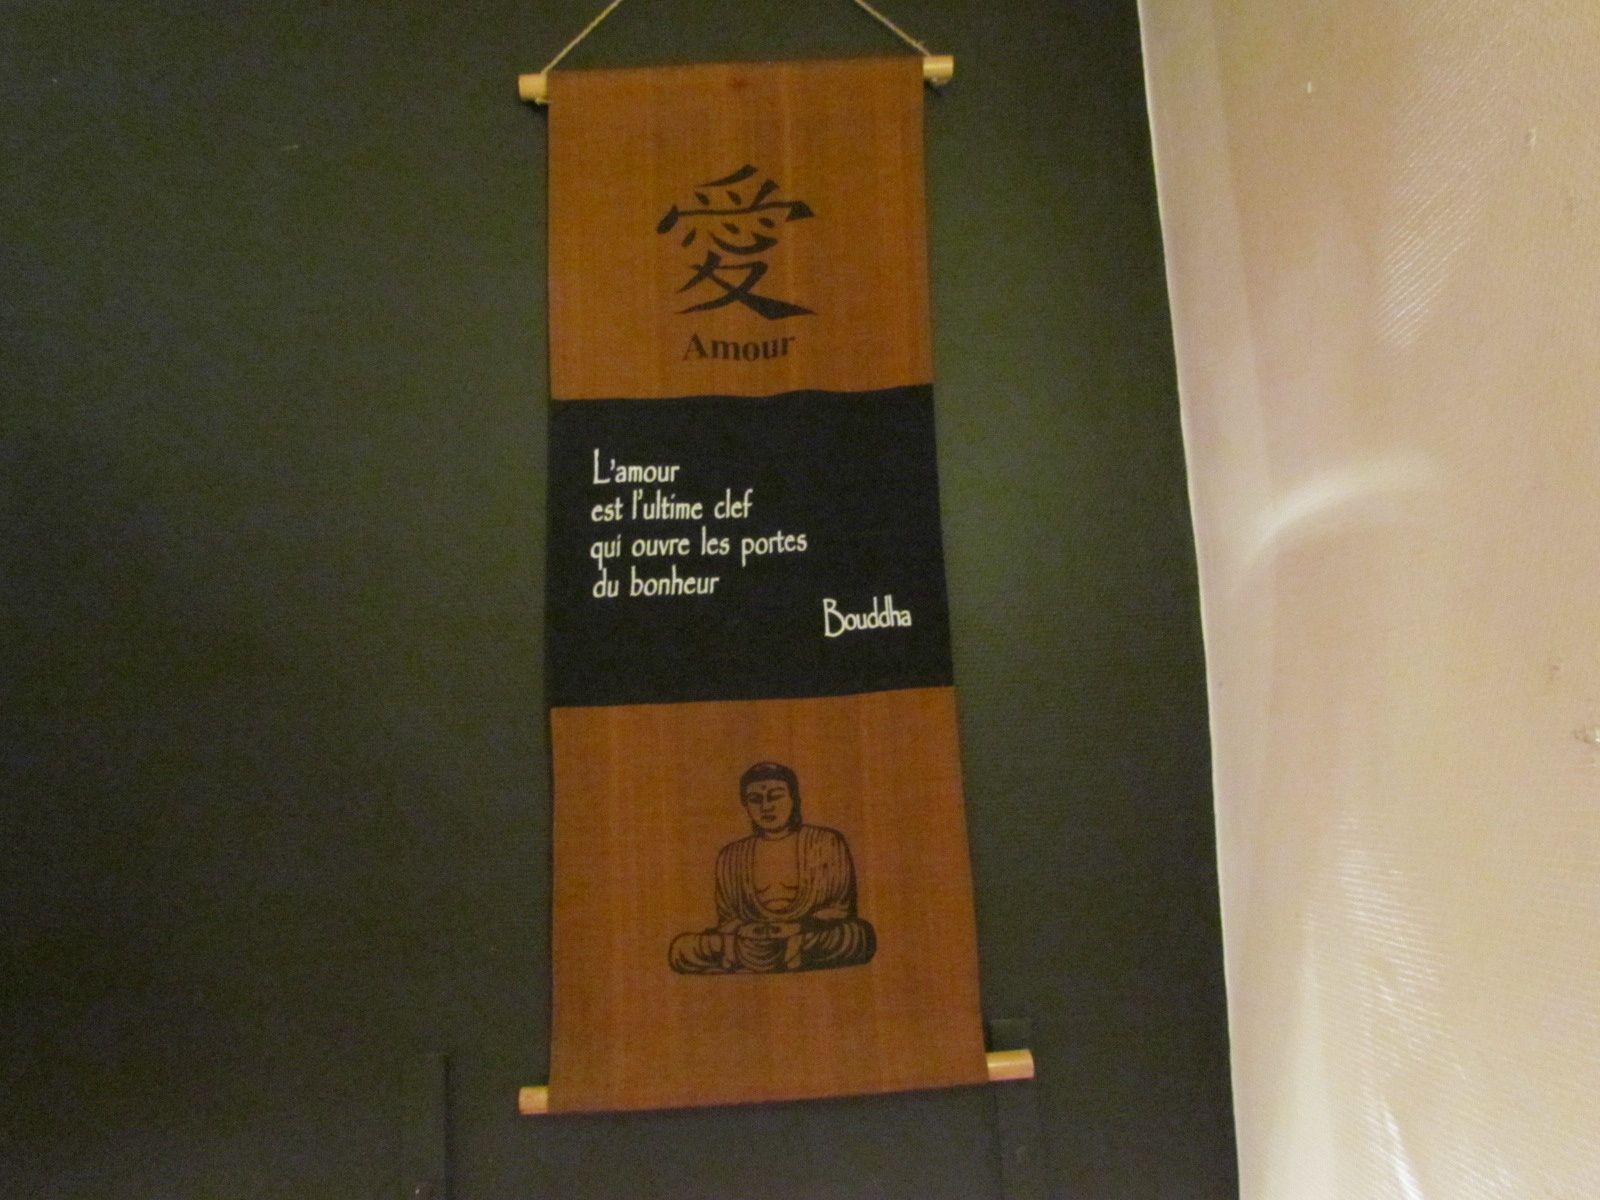 愛
Amour
L'amour
est l'ultime clef
qui ouvre les portes
du bonheur
Bouddha